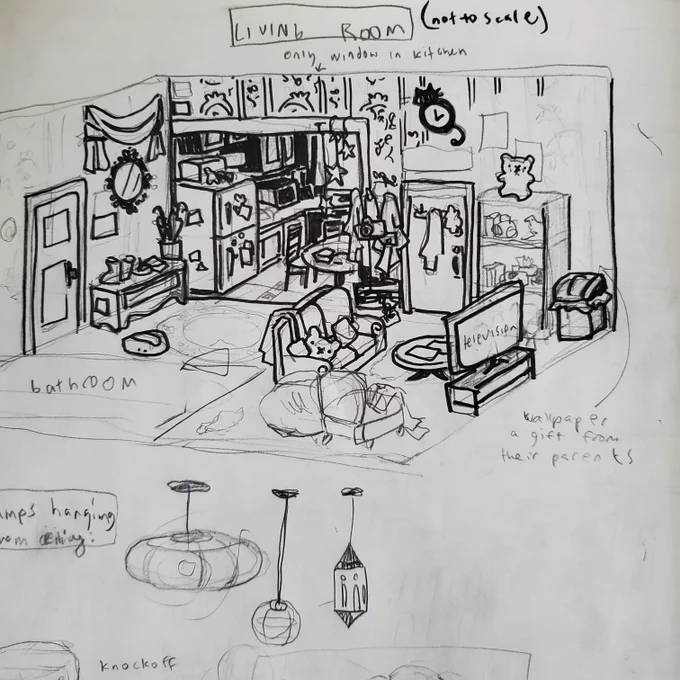 LIVING ROOM (not to scale)
only window in kitchen
television
bathroom
wallpaper
a gift from
their parents
amps hanging
rom ceiling:
knockoff